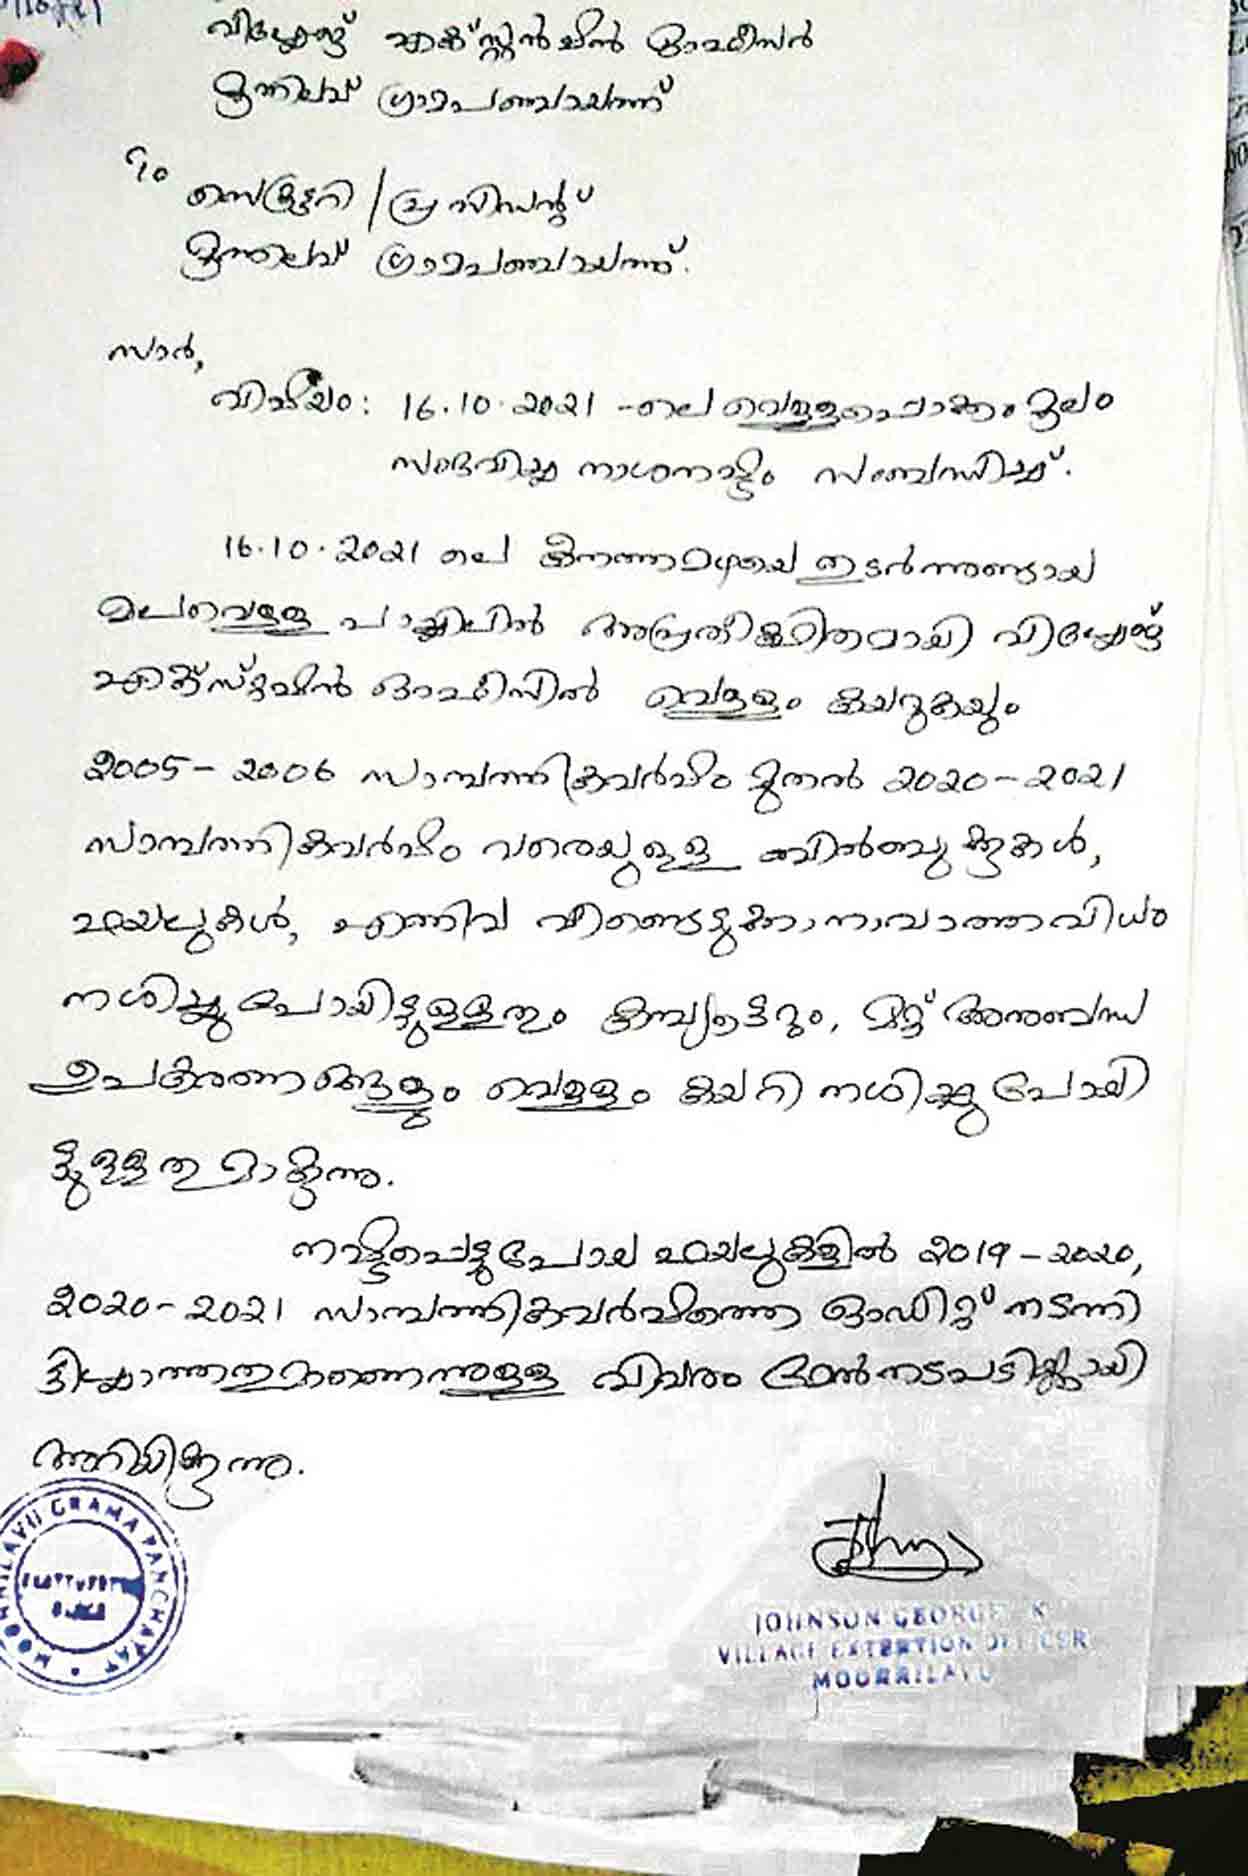 വില്ലേജ് എക്സ്റ്റൻഷൻ ഓഫീസർ
മൂന്നിലവ് ഗ്രാമപഞ്ചായത്ത്
To
സെക്രട്ടറി / പ്രസിഡന്റ്
മൂന്നിലവ് ഗ്രാമപഞ്ചായത്ത്.
സാർ,
വിഷയം: 16.10.2021 -ലെ വെള്ളപ്പൊക്കം മൂലം
സംഭവിച്ച നാശനഷ്ടം സംബന്ധിച്ച്.
16.10.2021 ലെ കനത്തമഴയെ തുടർന്നുണ്ടായ
മലവെള്ള പാച്ചിലിൽ അപ്രതീക്ഷിതമായി വില്ലേജ്
എക്സ്റ്റൻഷൻ ഓഫീസിൽ വെള്ളം കയറുകയും
2005-2006 സാമ്പത്തികവർഷം മുതൽ 2020-2021
സാമ്പത്തികവർഷം വരെയുള്ള ബിൽബുക്കുകൾ,
ഫയലുകൾ, എന്നിവ വീണ്ടെടുക്കാനാവാത്തവിധം
നശിച്ചുപോയിട്ടുള്ളതും കമ്പ്യൂട്ടറും, മറ്റ് അനുബന്ധ
ഉപകരണങ്ങളും വെള്ളം കയറി നശിച്ചുപോയി
ട്ടുള്ളതുമാകുന്നു.
നഷ്ടപ്പെട്ടുപോയ ഫയലുകളിൽ 2019-2020,
2020-2021 സാമ്പത്തികവർഷത്തെ ഓഡിറ്റ് നടന്നി
ട്ടില്ലാത്തതുമാണെന്നുള്ള വിവരം മേൽനടപടിയ്ക്കായി
അറിയിക്കുന്നു.
MOONNILAVU GRAMA PANCHAYAT
JOHNSON GEORGE K
VILLAGE EXTENTION OFFICER
MOONNILAVU